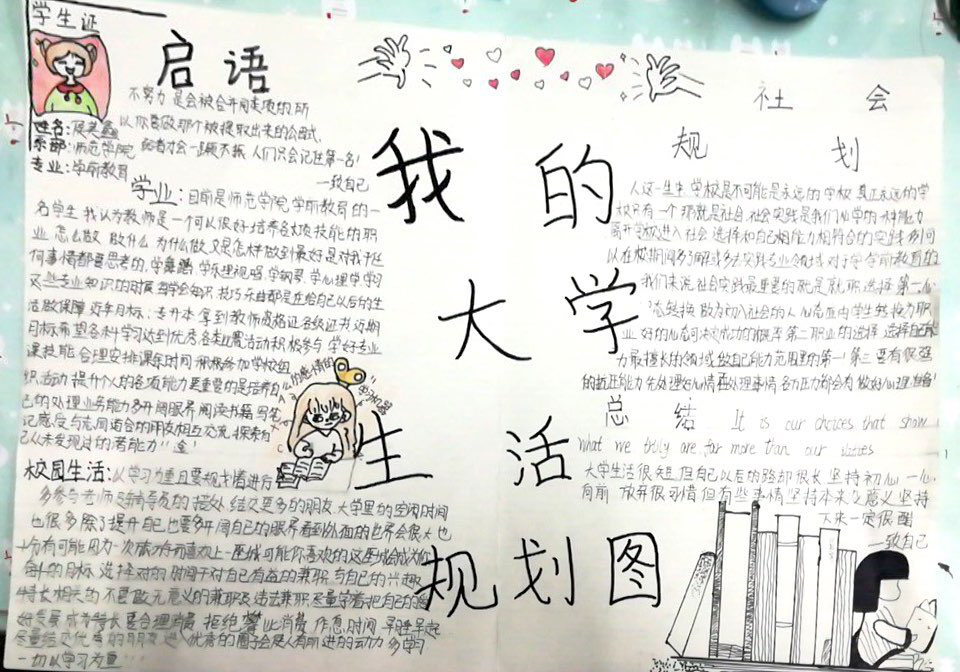 学生证
启语
不努力是会被合并同类项的,所
以你要做那个被提取出来的公因式,
人们只会记住第一名!
一致自己
姓名:
系部:师范学院
专业:学前教育
学业:目前是师范学院学前教育的一
名学生 我认为教师是一个可以很好培养各项技能的职
业 怎么做 做什么 为什么做 又是怎样做到最好是对我任
何事情都要思考的,学舞蹈,学乐理视唱,学钢琴,学心理学,学习
这些专业知识的时候
都是在给自己以后的生
活做保障 近年目标:专升本 拿到教师资格证各级证书 近期
目标希望各科学习达到优秀 各类比赛活动积极参与 学好专业
课技能 合理安排课余时间 积极参加学校组
织活动 提升个人的各项能力 更重要的是培养自
己的处理业务能力 多开阔眼界 阅读书籍 写笔
记感受 与志同道合的朋友相互交流,探索自
己从未发现过的潜能力
校园生活:以学习为重且要规划着进行
多参与老师 辅导员的接处 结交更多的朋友 大学里的空闲时间
也很多 除了提升自己也要多开阔自己的眼界 看到外面的世界会很大 也
十分有可能因为一次旅行而喜欢上一座城 可能你喜欢的这座城会成为你
奋斗的目标 选择对的时间干对自己有益的兼职 与自己的兴趣
特长相关的 不要做无意义的兼职及违法兼职 尽量学着把自己的
成为特长 要合理消费 拒绝攀比消费 作息时间 早睡早起
尽量结交优秀的朋友 进入优秀的圈子会使人有前进的动力 多学习
一切以学习为重
我的
大学
生活
规划图
社会
规划
人这一生 学校是不可能是永远的学校 真正永远的学
校只有一个 那就是社会 社会实践是我们
离开学校进入社会 选择和自己相能力相符合的实践 多问
以在校期间多了解或多去实践专业领域 对于学学前教育的
我们来说 社会实践最重要的就是就职 选择 第一心
态转换 做为初入社会的人 心态应由学生转换为职
业 好的心态可决定成功的概率 第二职业的选择 选择自己
力最擅长的领域 做自己能力范围里的第一 第三 要有很强
的抗压能力 先处理好心情再处理事情 各方压力都会有 做好心理准备!
总结
It is our choices that show
what we truly are. far more than our
大学生活很短 但自己以后的路却很长 坚持初心 一心
向前 放弃很可惜 但有些事情坚持本来之意义 坚持
下来一定很酷
一致自己